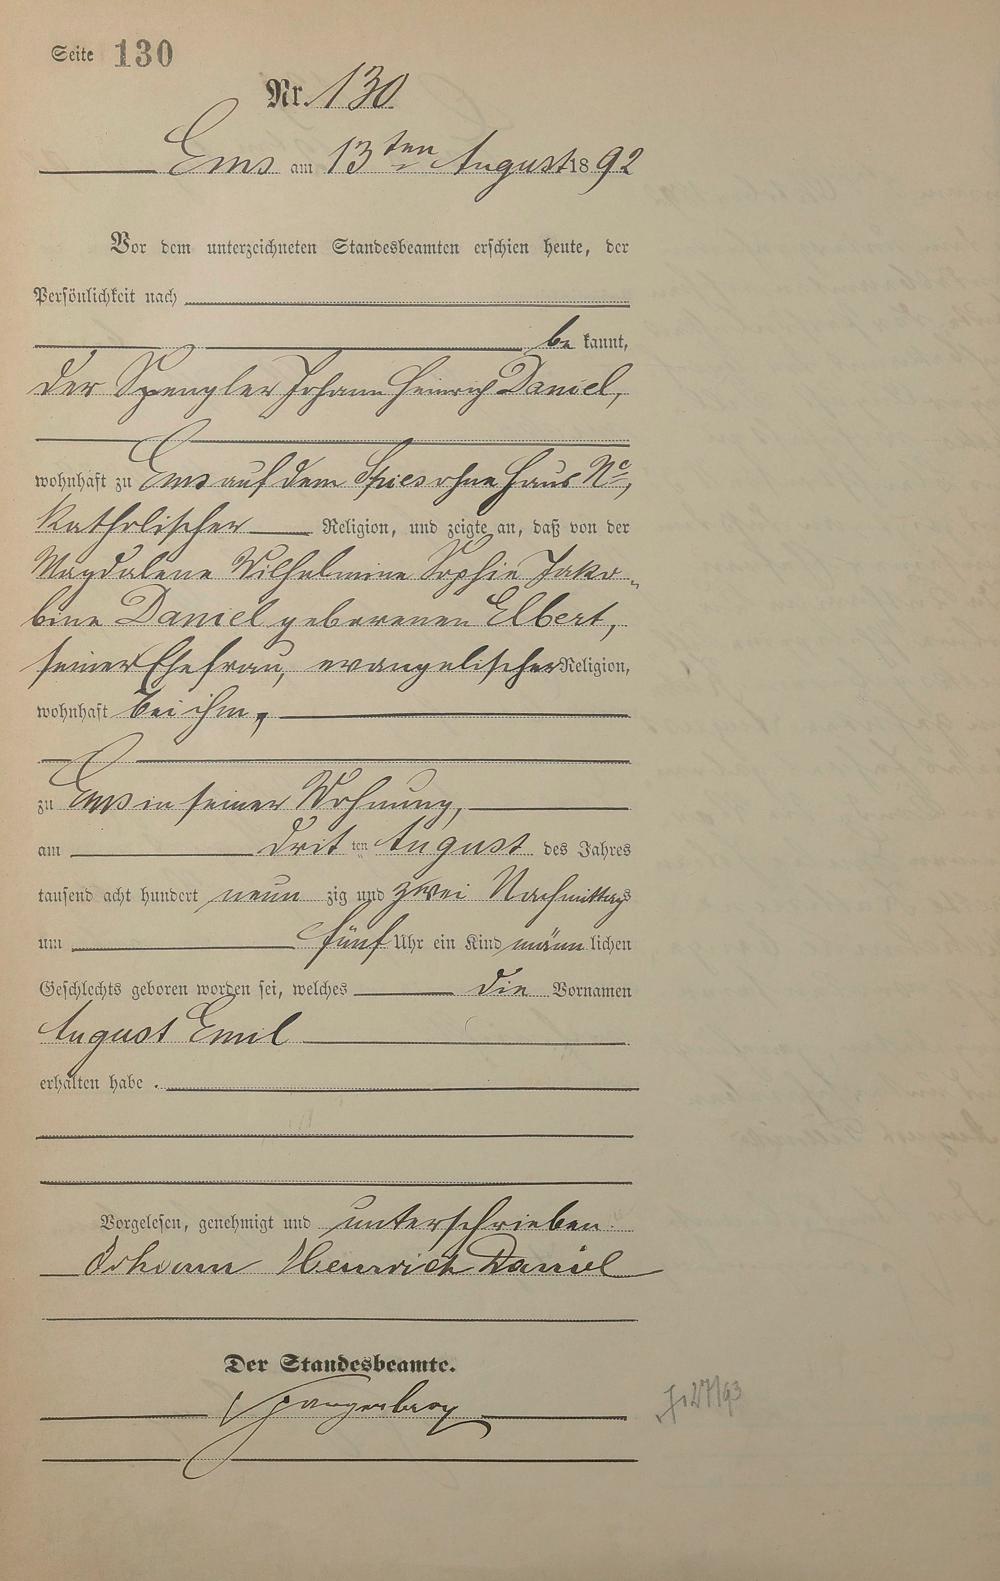 Seite 130
Nr. 130
Ems am 13ten August 1892
Vor dem unterzeichneten Standesbeamten erschien heute, der
Persönlichkeit nach
be kannt,
der Spengler Johann Heinrich Daniel,
wohnhaft zu Ems auf dem Spies ohne Haus No,
katholischer Religion, und zeigte an, daß von der
Magdalena Wilhelmine Sophie Jako-
bine Daniel geborenen Elbert,
seiner Ehefrau, evangelischer Religion,
wohnhaft bei ihm,
zu Ems in seiner Wohnung,
am drit ten August des Jahres
tausend acht hundert neun zig und zwei Nachmittags
um fünf Uhr ein Kind männ lichen
Geschlechts geboren worden sei, welches die Vornamen
August Emil
erhalten habe.
Vorgelesen, genehmigt und unterschrieben.
Johann Heinrich Daniel
Der Standesbeamte.
27/93